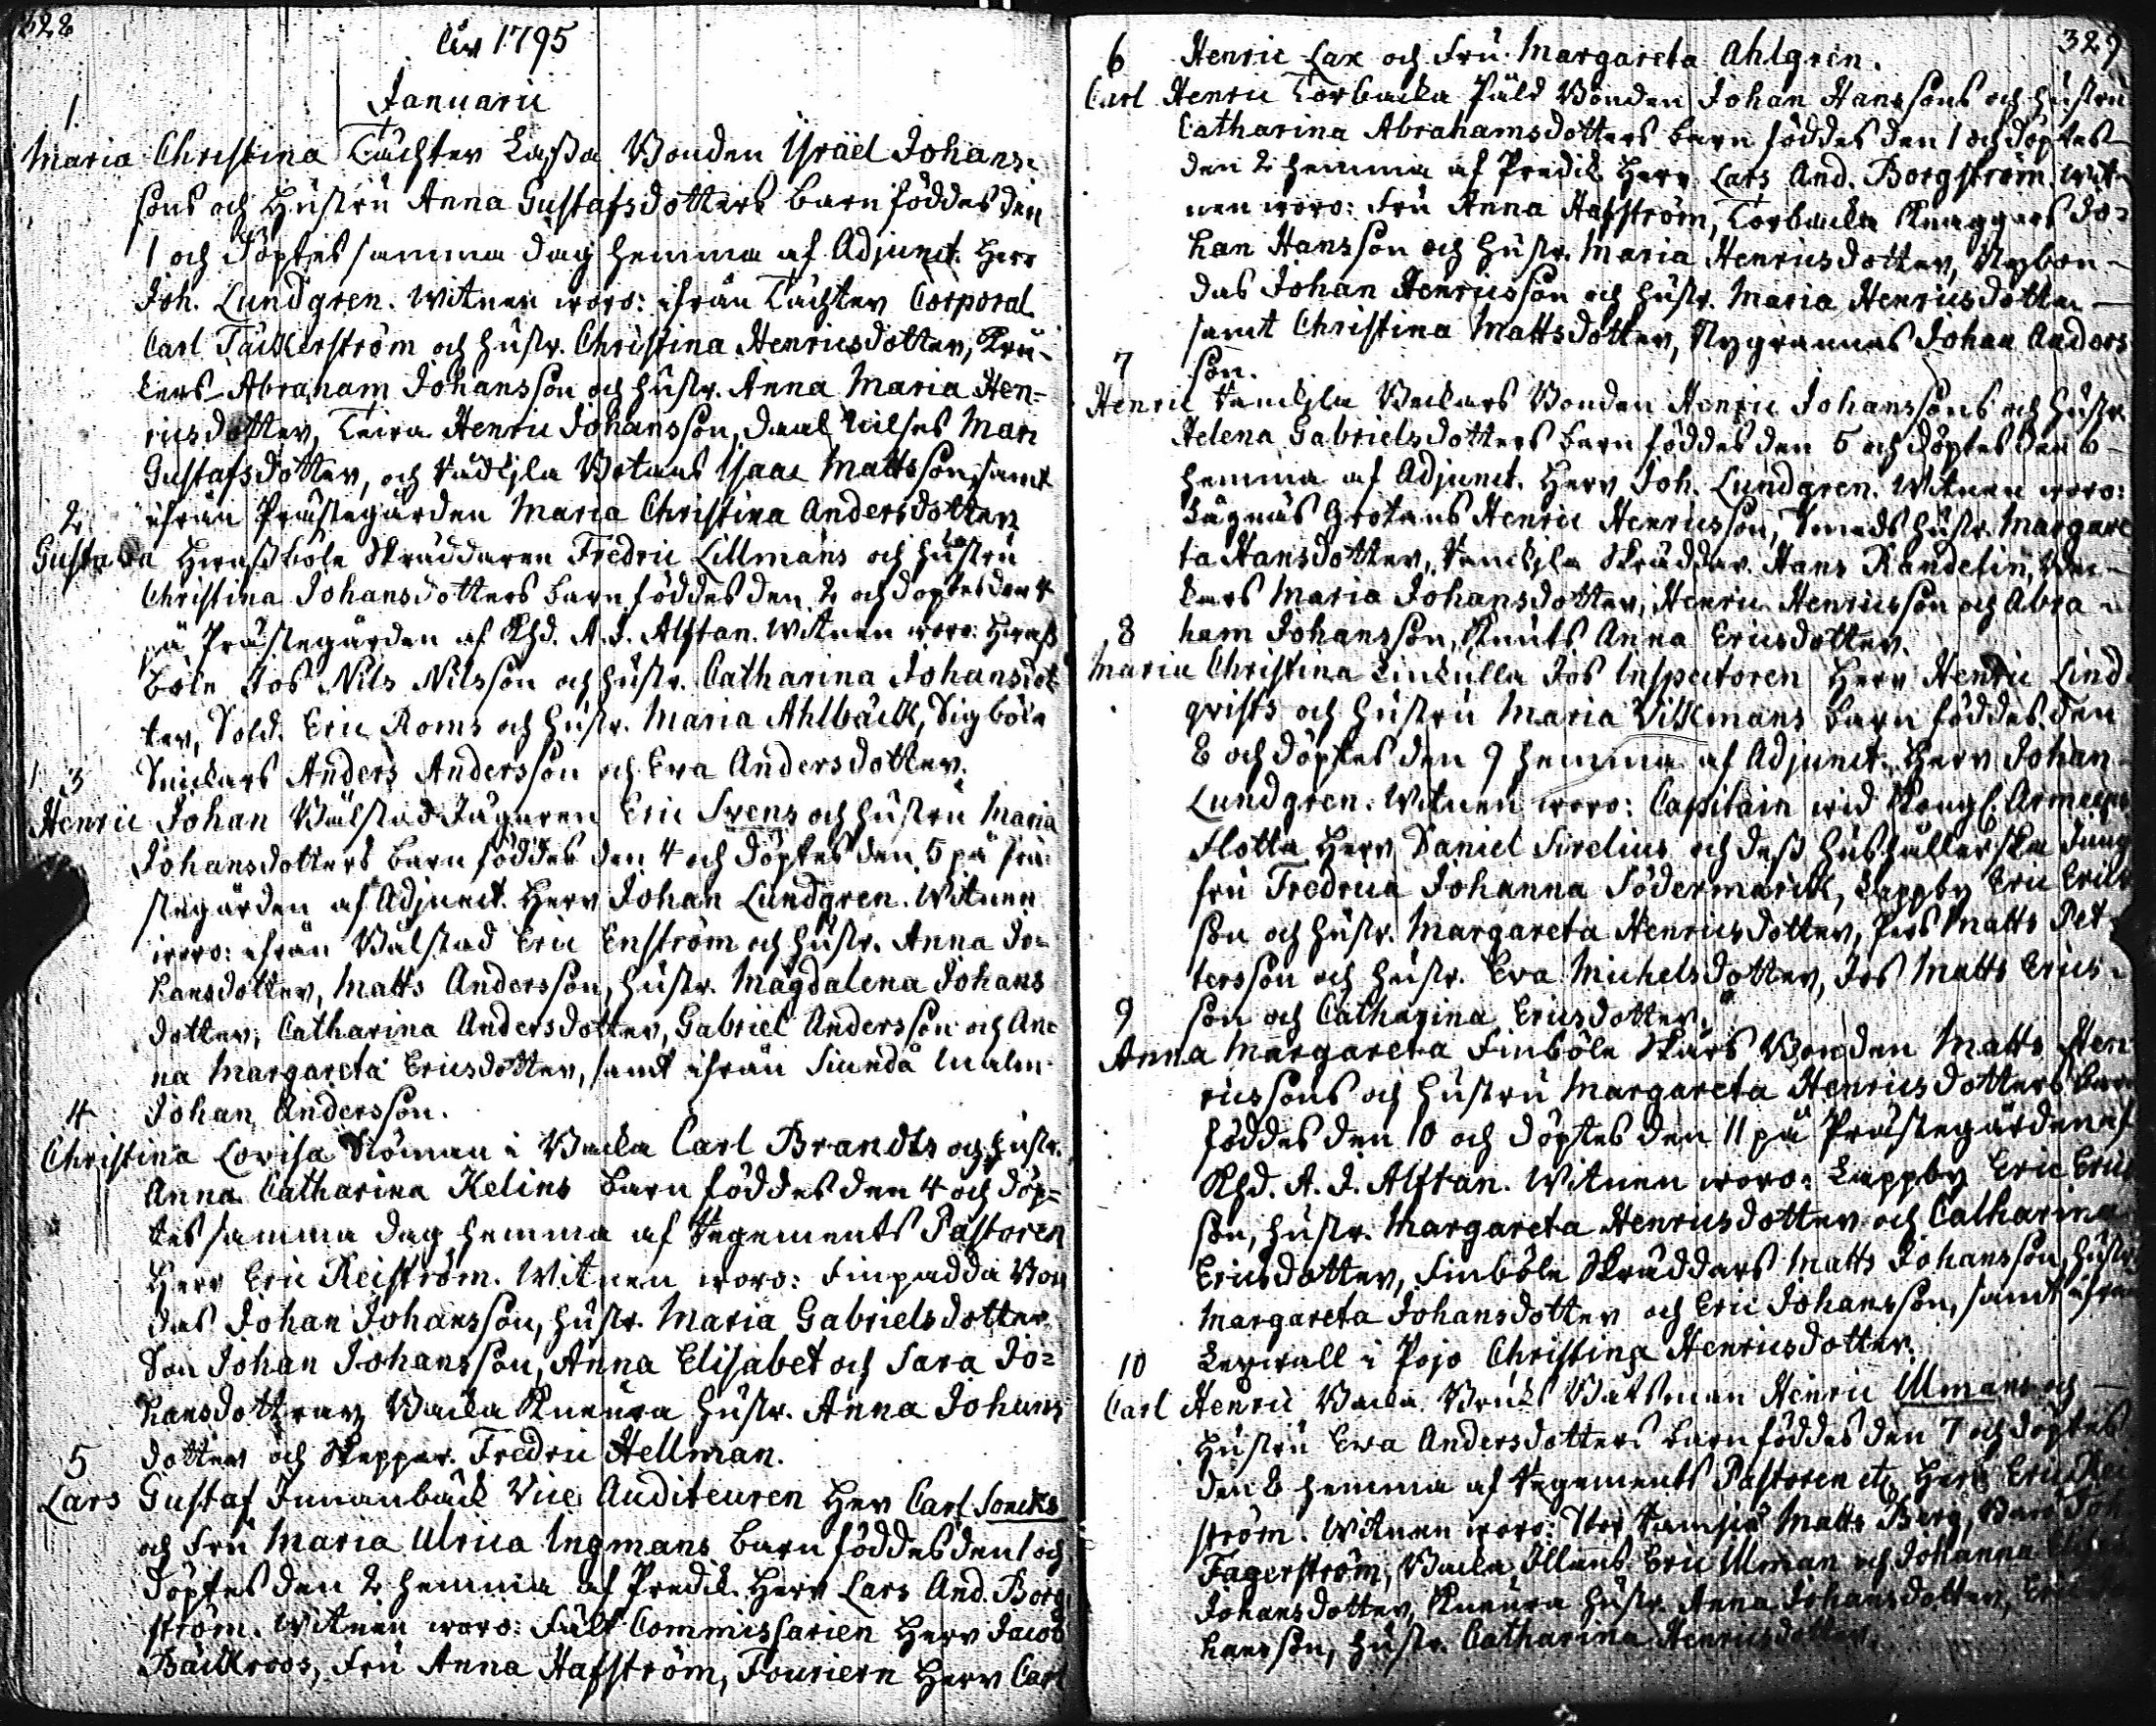 328
År 1795
Januarii
1.
Maria Christina Täckter Lassa Bonden Ysräel Johans-
sons och Hustru Anna Gustafsdotters barn föddes den
1 och döptes samma dag hemma af Adjunct. Herr
Joh. Lundgren. Witnen woro: ifrån Täckter Corporal
Carl Täckerström och hustr. Christina Henricsdotter, Kru-
kers Abraham Johansson och hustr. Anna Maria Hen-
ricsdotter, Henric Johansson, Mari
Gustafsdotter, och Isaac Mattsson, samt
2. ifrån Prästegården Maria Christina Andersdotter
Gustava böle Skräddaren Fredric Lillmans och hustru
Christina Johansdotters barn föddes den 2 och döptes den 4
på Prästegården af Khd. A. J. Alftan. Witnen woro:
böle Jos Nils Nilsson och hustr. Catharina Johansdot-
ter, Sold. Eric Roms och hustr. Maria Ahlbäck, Sigböle
3 Snickars Anders Andersson och Eva Andersdotter.
Henric Johan Wälstad Jägaren Eric Svens och hustru Maria
Johansdotters barn föddes den 4 och döptes den 5 på Prä-
stegården af Adjunct. Herr Johan Lundgren. Witnen
woro: ifrån Wälstad Eric Enström och hustr. Anna Jo-
hansdotter, Matts Andersson, hustr. Magdalena Johans
dotter, Catharina Andersdotter, Gabriel Andersson och An-
na Margareta Ericsdotter, samt ifrån Siundå Malm
4 Johan Andersson.
Christina Lovisa Sjöman i Backa Carl Brandts och hustr.
Anna Catharina Kelins barn föddes den 4 och döp-
tes samma dag hemma af Regements Pastoren
Herr Eric Reiström. Witnen woro: Finpadda Bon
das Johan Johansson, hustr. Maria Gabrielsdotter
Son Johan Johansson, Anna Elisabet och Sara Jo-
hansdottrar, Backa hustr. Anna Johans
5 dotter och Skeppar. Fredric Hellman.
Lars Gustaf Innanbäck Vice Auditeuren Herr Carl Soncks
och Fru Maria Ulrica Ingmans barn föddes den 1 och
döptes den 2 hemma af Predik. Herr Lars And. Borg
ström. Witnen woro: Fält Commissarien Herr Jacob
Bäckroos, Fru Anna Hafström, Fouriern Herr Carl
329
6 Henric Lax och Fru Margareta Ahlgren.
Carl Henric Torbacka Päld Bonden Johan Hanssons och hustru
Catharina Abrahamsdotters barn föddes den 1 och döptes
den 2 hemma af Predik. Herr Lars And. Borgström. Wit-
nen woro: Fru Anna Hafström, Torbacka Knaggars Jo-
han Hansson och hustr. Maria Henricsdotter, Nybon-
das Johan Henricsson och hustr. Maria Henricsdotter
samt Christina Mattsdotter, Nygrannas Johan Anders
7 son.
Henric Backars Bonden Henric Johanssons och hustr.
Helena Gabrielsdotters barn föddes den 5 och döptes den 6
hemma af Adjunct. Herr Joh. Lundgren. Witnen woro:
Henric Henricsson, Smeds hustr. Margare
ta Hansdotter, Skräddar. Hans Randelin, Bac-
kars Maria Johansdotter, Henric Henricsson och Abra-
8 ham Johansson, Knuts Anna Ericsdotter.
Maria Christina Linkulla Jos Inspectoren Herr Henric Lind
qvists och hustru Maria Vikmans barn föddes den
8 och döptes den 9 hemma af Adjunct. Herr Johan
Lundgren. Witnen woro: Capitain wid Kongl. Armeens
Flotta Herr Daniel Sirelius och dess hushållerska Jung
fru Fredrica Johanna Södermarck, Lappby Eric Erics
son och hustr. Margareta Henricsdotter, Pers Matts Pet-
tersson och hustr. Eva Michelsdotter, Jos Matts Erics
9 son och Catharina Ericsdotter.
Anna Margareta Finböle Skärs Bonden Matts Hen
ricssons och hustru Margareta Henricsdotters barn
föddes den 10 och döptes den 11 på Prästegården af
Khd. A. J. Alftan. Witnen woro: Lappby Eric Erics
son, hustr. Margareta Henricsdotter och Catharina
Ericsdotter, Finböle Skräddars Matts Johansson, hustr.
Margareta Johansdotter och Eric Johansson, samt ifrån
10 Lexwall i Pojo Christina Henricsdotter.
Carl Henric Backa Bruks Båtsman Henric Ulmans och
hustru Ewa Andersdotters barn föddes den 7 och döptes
den 8 hemma af Regements Pastoren etc Herr Eric Rei
ström. Witnen woro: Stor Ramsjö Matts Berg,
Fagerström, Backa Eric Ulman och Johanna
Johansdotter, hustr. Anna Johansdotter,
hansson, hustr. Catharina Henricsdotter.